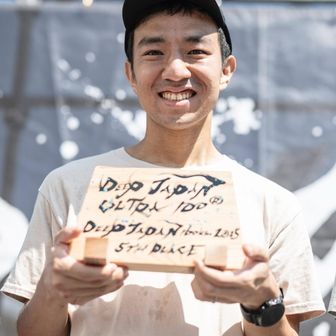 DEEP JAPAN
ULTRA 100®
DEEP JAPAN
5TH PLACE